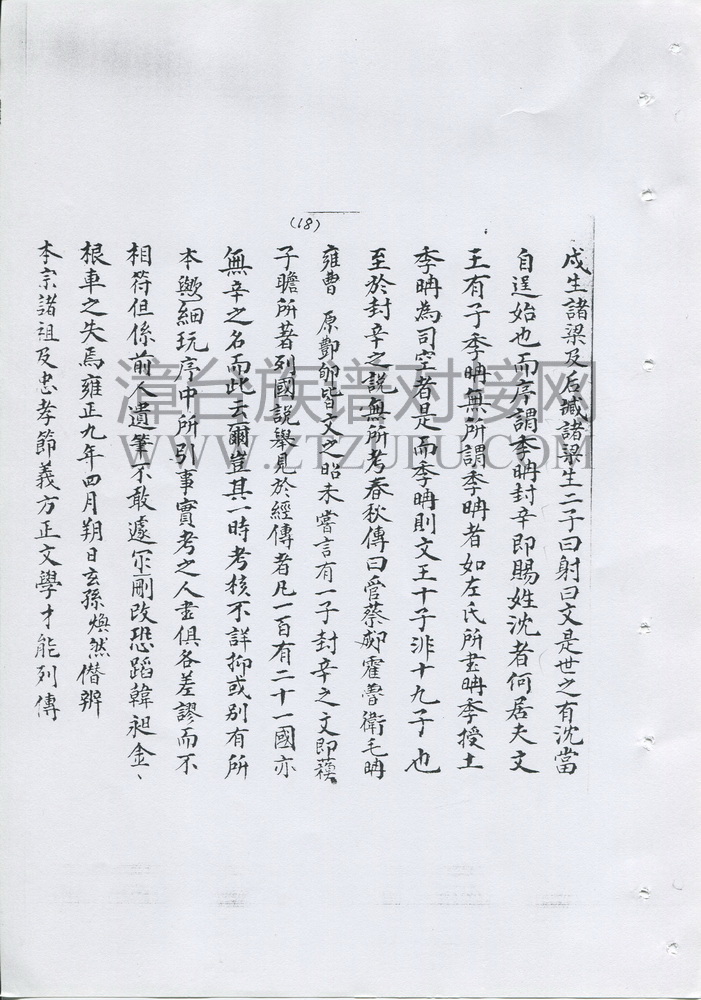 (18)
戍生諸梁及后臧諸梁生二子曰射曰文是世之有沈當
自逞始也而序謂季聃封辛即賜姓沈者何居夫文
王有子季聃無所謂季聃者如左氏所書聃季授土
季聃為司空者是而季聃則文王十子非十九子也
至於封辛之說無所考春秋傳曰管蔡郕霍魯衛毛聃
雍曹 原酆郇皆文之昭未嘗言有一子封辛之文即蘓
子瞻所著列國說舉見於經傳者凡一百有二十一國亦
無辛之名而此云爾豈其一時考核不詳抑或別有所
本歟細玩序中所引事實考之人書俱各差謬而不
相符但係前人遺筆不敢遽 刪改恐蹈韓昶金、
根車之失焉雍正九年四月朔日玄孫煥然僭辨
本宗諸祖及忠孝節義方正文學才能列傳
漳台族谱对接网
WWW.ZTZUPU.COM